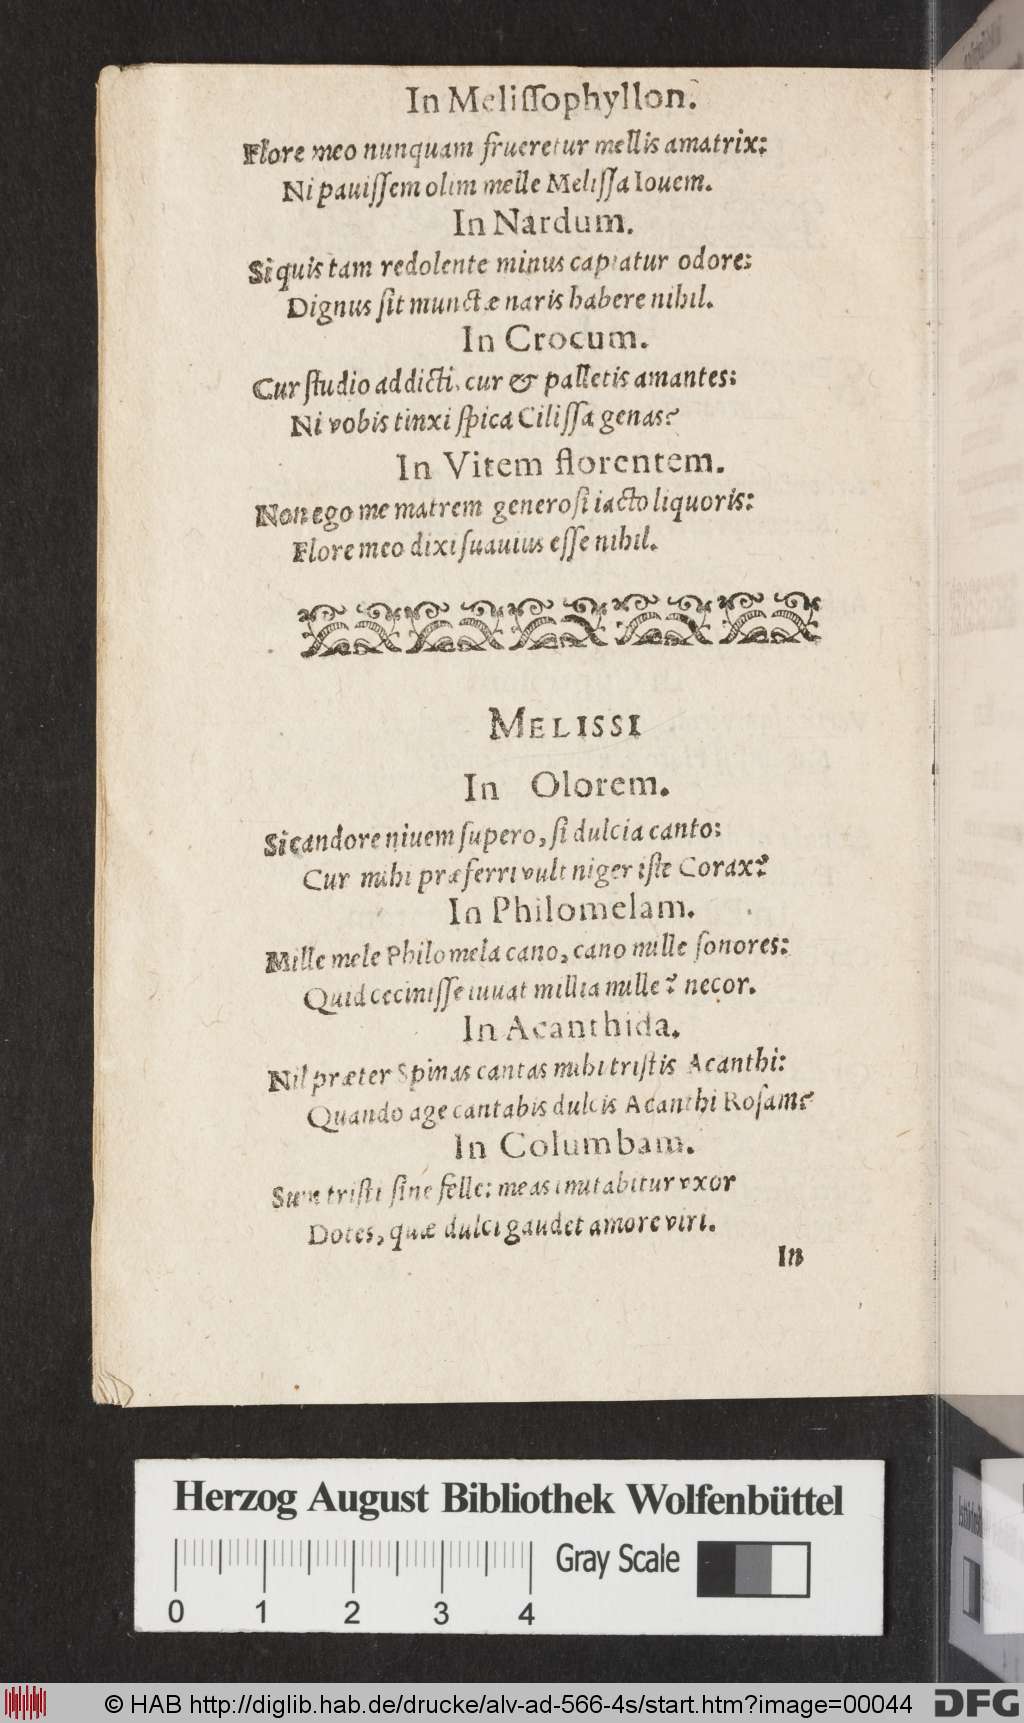 In Melissophyllon.
Flore meo nunquam frueretur mellis amatrix:
Ni pavissem olim melle Melissa Iouem.
In Nardum.
Si quis tam redolente minus captatur odore:
Dignus sit munctæ naris habere nihil.
In Crocum.
Cur studio addicti, cur & palletis amantes:
Ni vobis tinxi spica Cilissa genas?
In Vitem florentem.
Non ego me matrem generosi iacto liquoris:
Flore meo dixi suauius esse nihil.
MELISSI
In Olorem.
Si candore niuem supero, si dulcia canto:
Cur mihi præferri vult niger iste Corax?
In Philomelam.
Mille mele Philomela cano, cano mille sonores:
Quid cecinisse iuuat millia mille? necor.
In Acanthida.
Nil præter Spinas cantas mihi tristis Acanthi:
Quando age cantabis dulcis Acanthi Rosam?
In Columbam.
Sum tristi sine felle: meas imitabitur vxor
Dotes, quæ dulci gaudet amore viri.
In
Herzog August Bibliothek Wolfenbüttel
Gray Scale
0 1 2 3 4
© HAB http://diglib.hab.de/drucke/alv-ad-566-4s/start.htm?image=00044
DFG